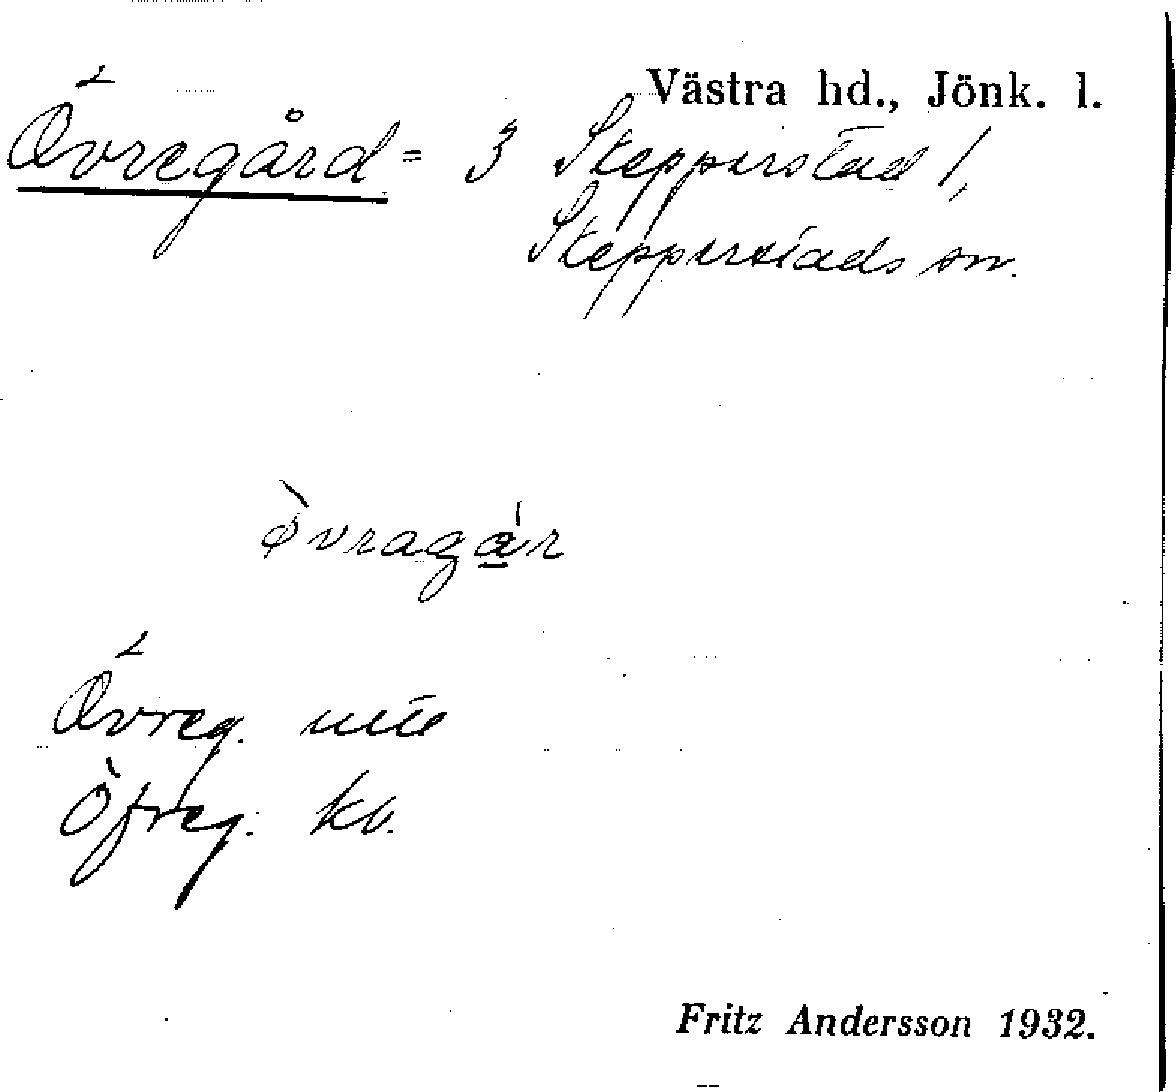 Västra hd., Jönk. l.
Övregård = 3 Skepperstad 1,
Skepperstads sn.
ø̀vragár
Övreg. utt
Öfreg. kb.
Fritz Andersson 1932.